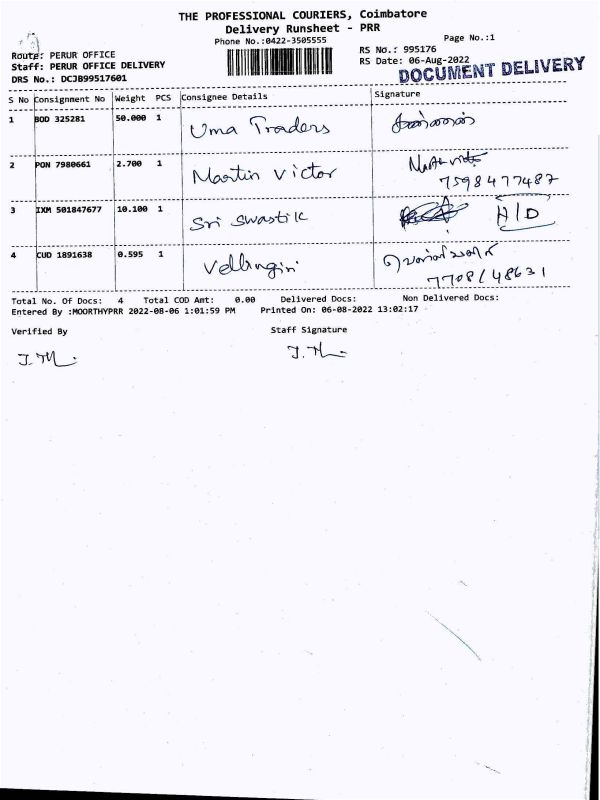 THE PROFESSIONAL COURIERS, Coimbatore
Delivery Runsheet - PRR
Phone No.:0422-3505555
Page No.:1
Route: PERUR OFFICE
RS No.: 995176
Staff: PERUR OFFICE DELIVERY
RS Date: 06-Aug-2022
DRS No.: DCJB99517601
DOCUMENT DELIVERY
S No Consignment No Weight PCS Consignee Details Signature
1 BOD 325281 50.000 1 Uma Traders
2 PON 7980661 2.700 1 Martin Victor
7598477487
3 IXM 501847677 10.100 1 Sri Swastik H/D
4 CUD 1891638 0.595 1 Vellingiri
7708148631
Total No. Of Docs: 4 Total COD Amt: 0.00 Delivered Docs: Non Delivered Docs:
Entered By :MOORTHYPRR 2022-08-06 1:01:59 PM Printed On: 06-08-2022 13:02:17
Verified By Staff Signature